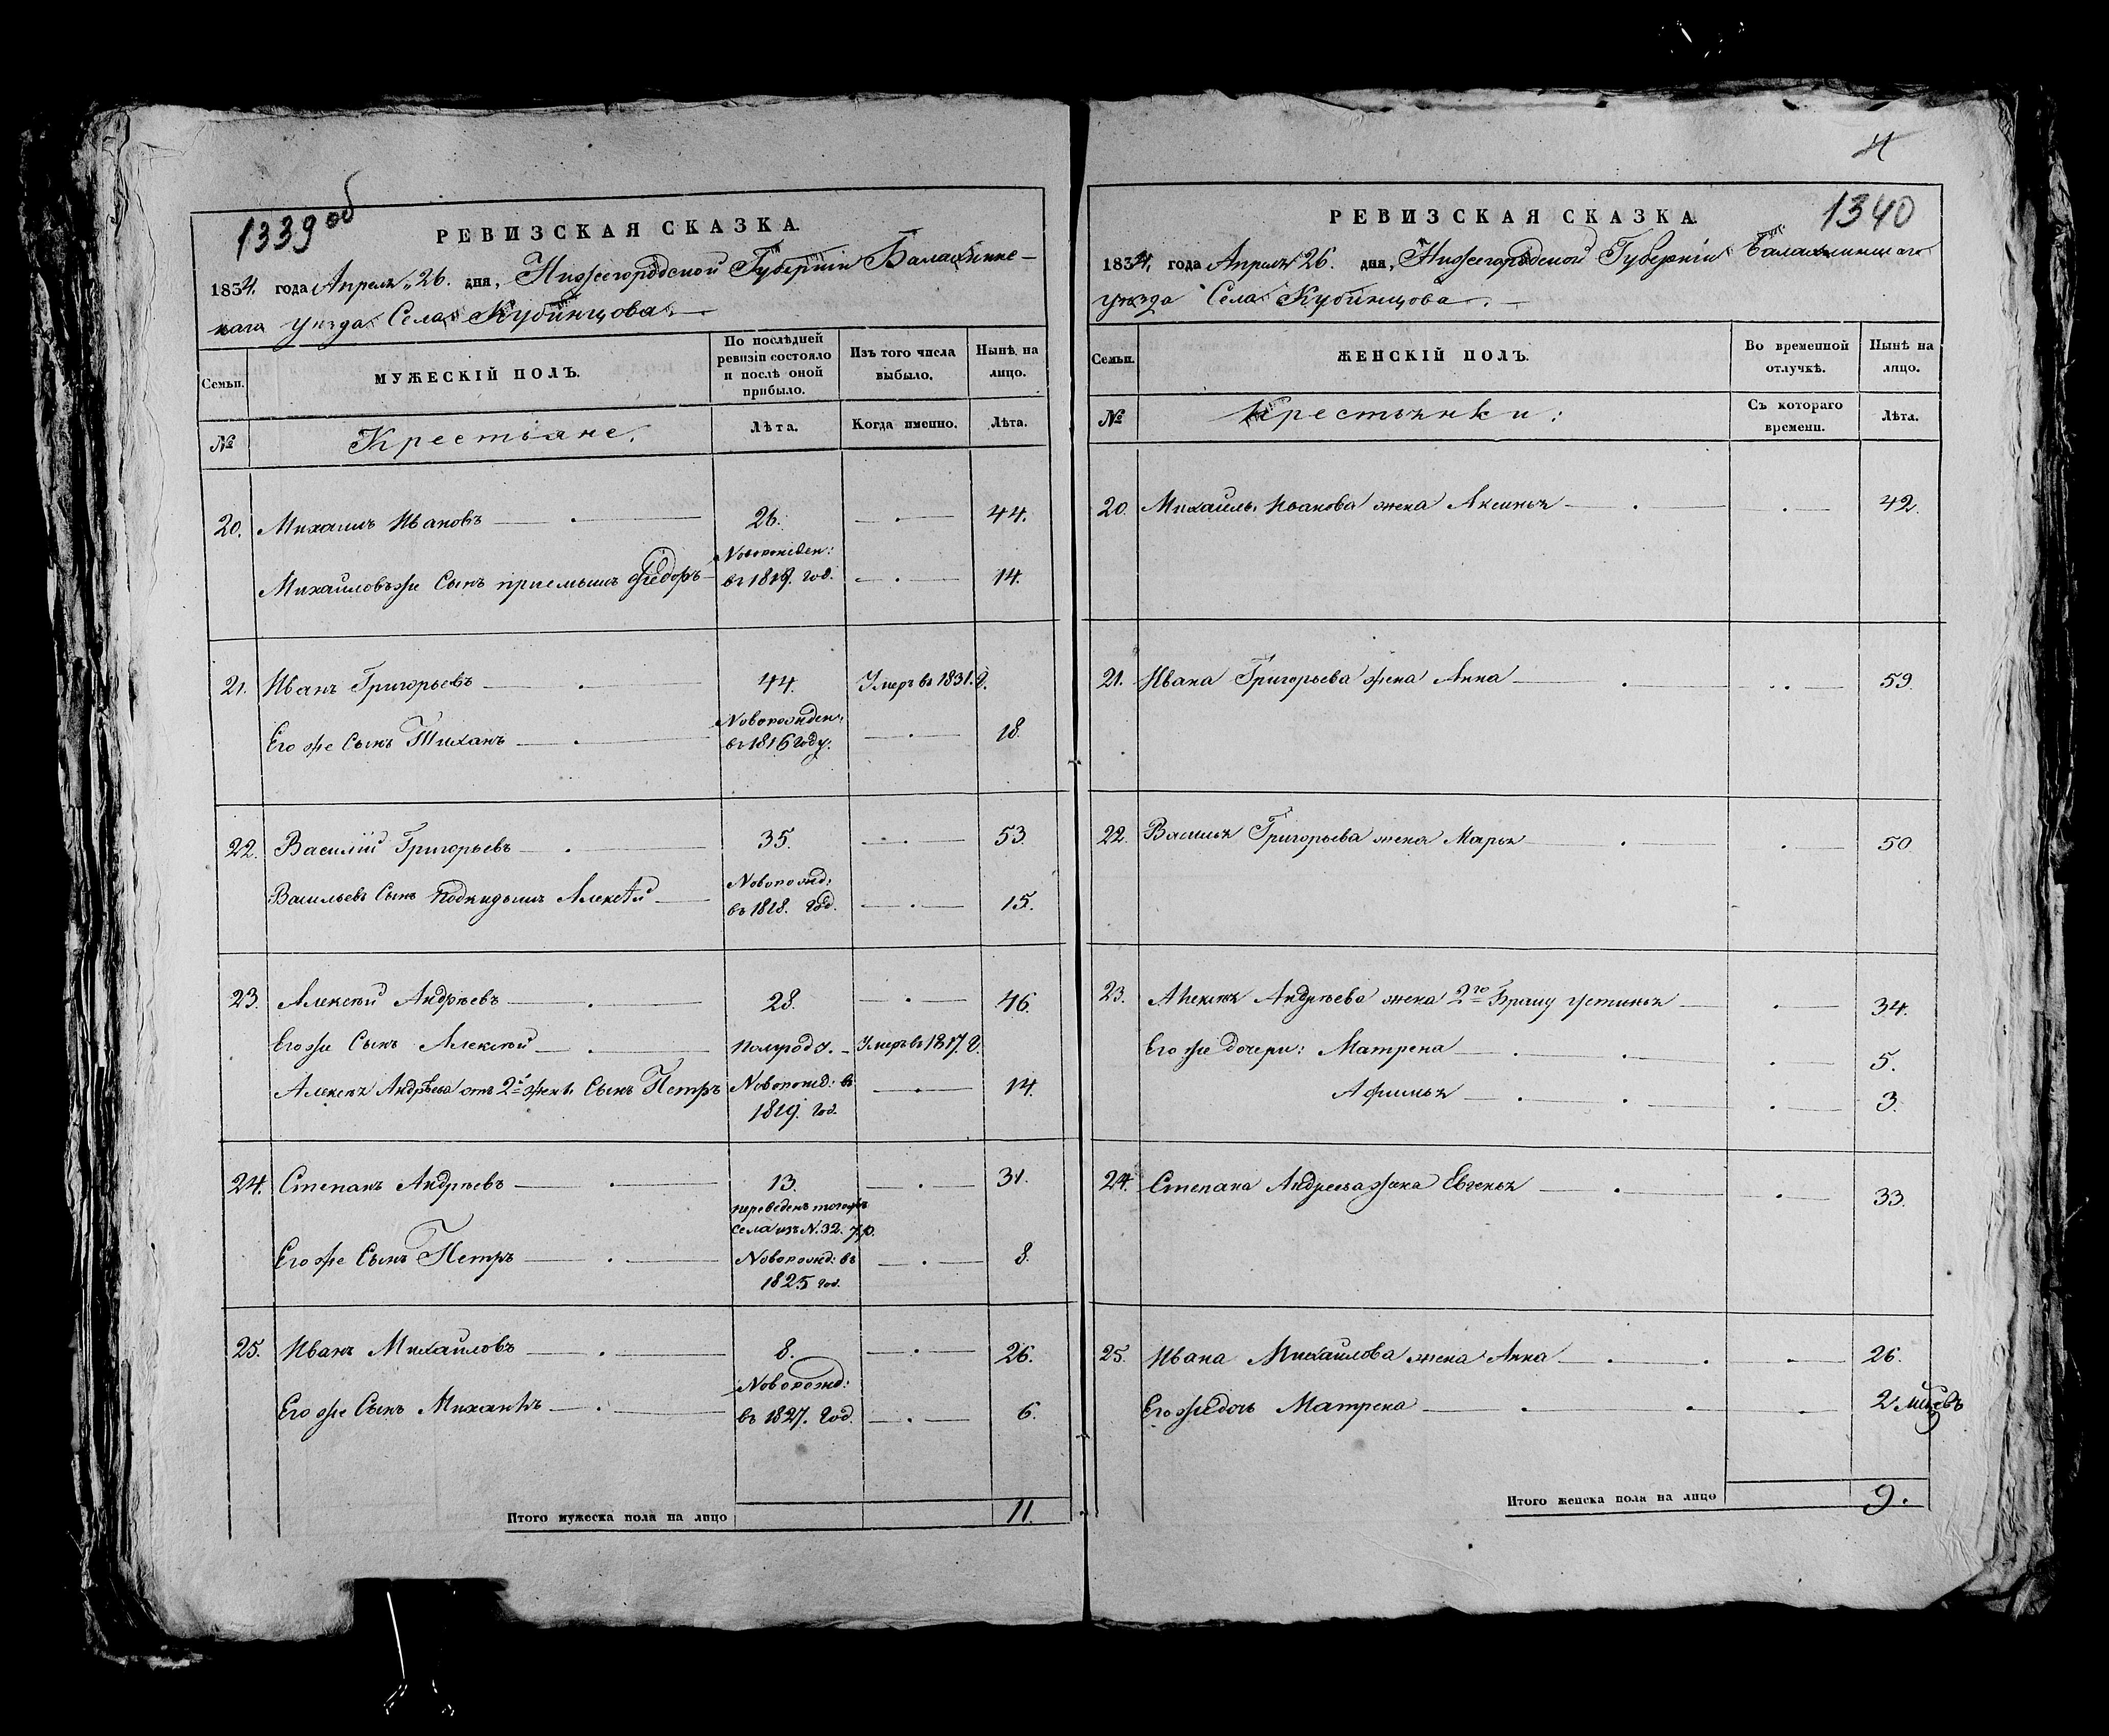 1339 об
РЕВИЗСКАЯ СКАЗКА.
1834. года Апреля 26. дня, Нижегородской Губерніи Балахнинс-
каго уезда Села Кубинцова
Семьи. МУЖЕСКІЙ ПОЛЪ. По послѣдней ревизіи состояло и послѣ оной прибыло. Изъ того числа выбыло. Нынѣ на лицо.
№ Крестьяне. Лѣта. Когда именно. Лѣта.
20. Михаилъ Ивановъ 26. 44.
Михайловъ же Сынъ приемышъ Федоръ Новорожден: въ 1819. год. 14.
21. Иванъ Григорьевъ 44. Умеръ въ 1831. г.
Его же Сынъ Тиханъ Новорожден: въ 1816 году. 18.
22. Василій Григорьевъ 35. 53.
Васильевъ Сынъ подкидышъ Алексѣй Новорожд: въ 1818. год. 15.
23. Алексѣй Андрѣевъ 28. 46.
Его же Сынъ Алексѣй полгода. Умеръ въ 1817. г.
Алексѣя Андрѣева отъ 2й жены Сынъ Петръ Новорожд: въ 1819. год. 14.
24. Степанъ Андрѣевъ 13. 31.
переведенъ тогожъ
села изъ N. 32.
Его же Сынъ Петръ Новорожд: въ 1825 год. 8.
25. Иванъ Михайловъ 8. 26.
Его же Сынъ Михаилъ Новорожд: въ 1827. год. 6.
Итого мужеска пола на лицо 11.
4
1340
РЕВИЗСКАЯ СКАЗКА
1834. года Апреля 26. дня, Нижегородской Губерніи Балахнинскаго
уѣзда Села Кубинцова.
Семьи. ЖЕНСКІЙ ПОЛЪ. Во временной отлучкѣ. Нынѣ на лицо.
№ Крестьянки: Съ котораго времени. Лѣта.
20. Михаила Иванова жена Аксинья 42.
21. Ивана Григорьева жена Анна 59.
22. Василья Григорьева жена Марья 50
23. Алексѣя Андрѣева жена 2го браку Устинья 34.
Его же дочери: Матрена 5.
Афимья 3.
24. Степана Андреева жена Евгенья 33.
25. Ивана Михайлова жена Анна 26.
Его же дочь Матрена 2 мцѣвъ
Итого женска пола на лицо 9.